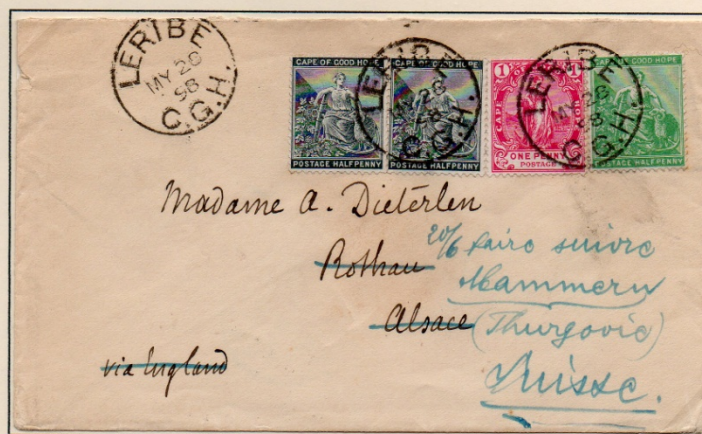 LERIBE
MY 20
98
C.G.H.
CAPE OF GOOD HOPE
POSTAGE HALFPENNY
CAPE OF GOOD HOPE
POSTAGE HALFPENNY
LERIBE
C.G.H.
1 1
CAPE
ONE PENNY
POSTAGE
LERIBE
MY 20
98
C.G.H.
POSTAGE HALFPENNY
Madame A. Dieterlen
Rothau
Alsace
via England
20/6 faire suivre
Mammern
(Thurgovie)
Suisse.